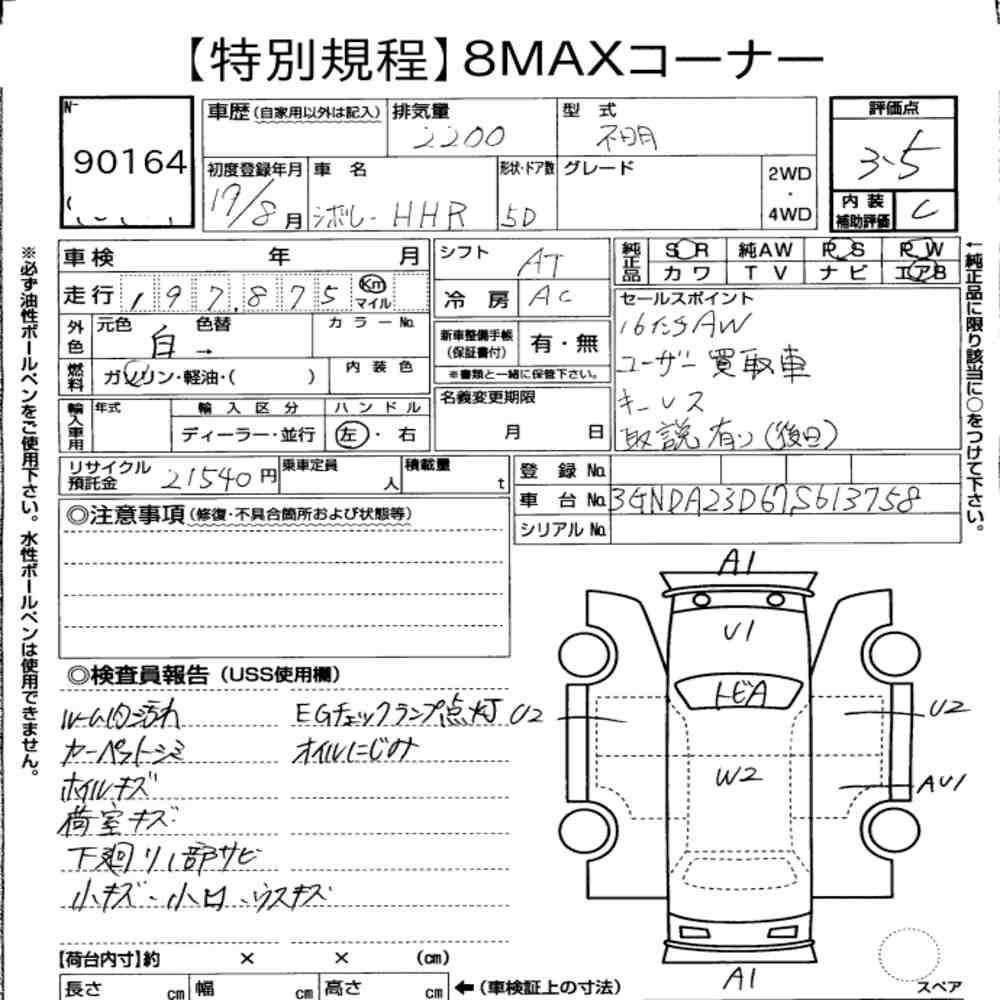 【特別規程】8MAXコーナー
N-
90164
車歴(自家用以外は記入)
排気量
2200
型 式
不明
評価点
3.5
初度登録年月
19/8月
車 名
シボレー HHR
形状・ドア数
5D
グレード
2WD
・
4WD
内装
補助評価
C
車検 年 月
走行 197,875 Km
マイル
シフト
AT
冷 房
AC
純正品
SR 純AW PS PW
カワ TV ナビ エアB
外色
元色
白
色替
→
カラーNo.
燃料
ガソリン・軽油・( )
内装色
新車整備手帳
(保証書付)
有・無
※書類と一緒に保管下さい。
セールスポイント
16インチAW
ユーザー買取車
キーレス
取説有り(後日)
輸入車用
年式
輸入区分
ディーラー・並行
ハンドル
左・右
名義変更期限
月 日
リサイクル
預託金
21540円
乗車定員
人
積載量
t
登録No.
車台No. 3GNDA23D67S613758
シリアルNo.
◎注意事項(修復・不具合箇所および状態等)
※必ず油性ボールペンをご使用下さい。水性ボールペンは使用できません。
←純正品に限り該当に○をつけて下さい。
◎検査員報告(USS使用欄)
ルーム内汚れ
EGチェックランプ点灯
カーペットシミ
オイルにじみ
ホイルキズ
荷室キズ
下廻り1部サビ
小キズ・小凹・ウスキズ
A1
U1
トビA
U2
U2
W2
AU1
A1
スペア
【荷台内寸】約 × × (cm)
長さ cm 幅 cm 高さ cm ←(車検証上の寸法)